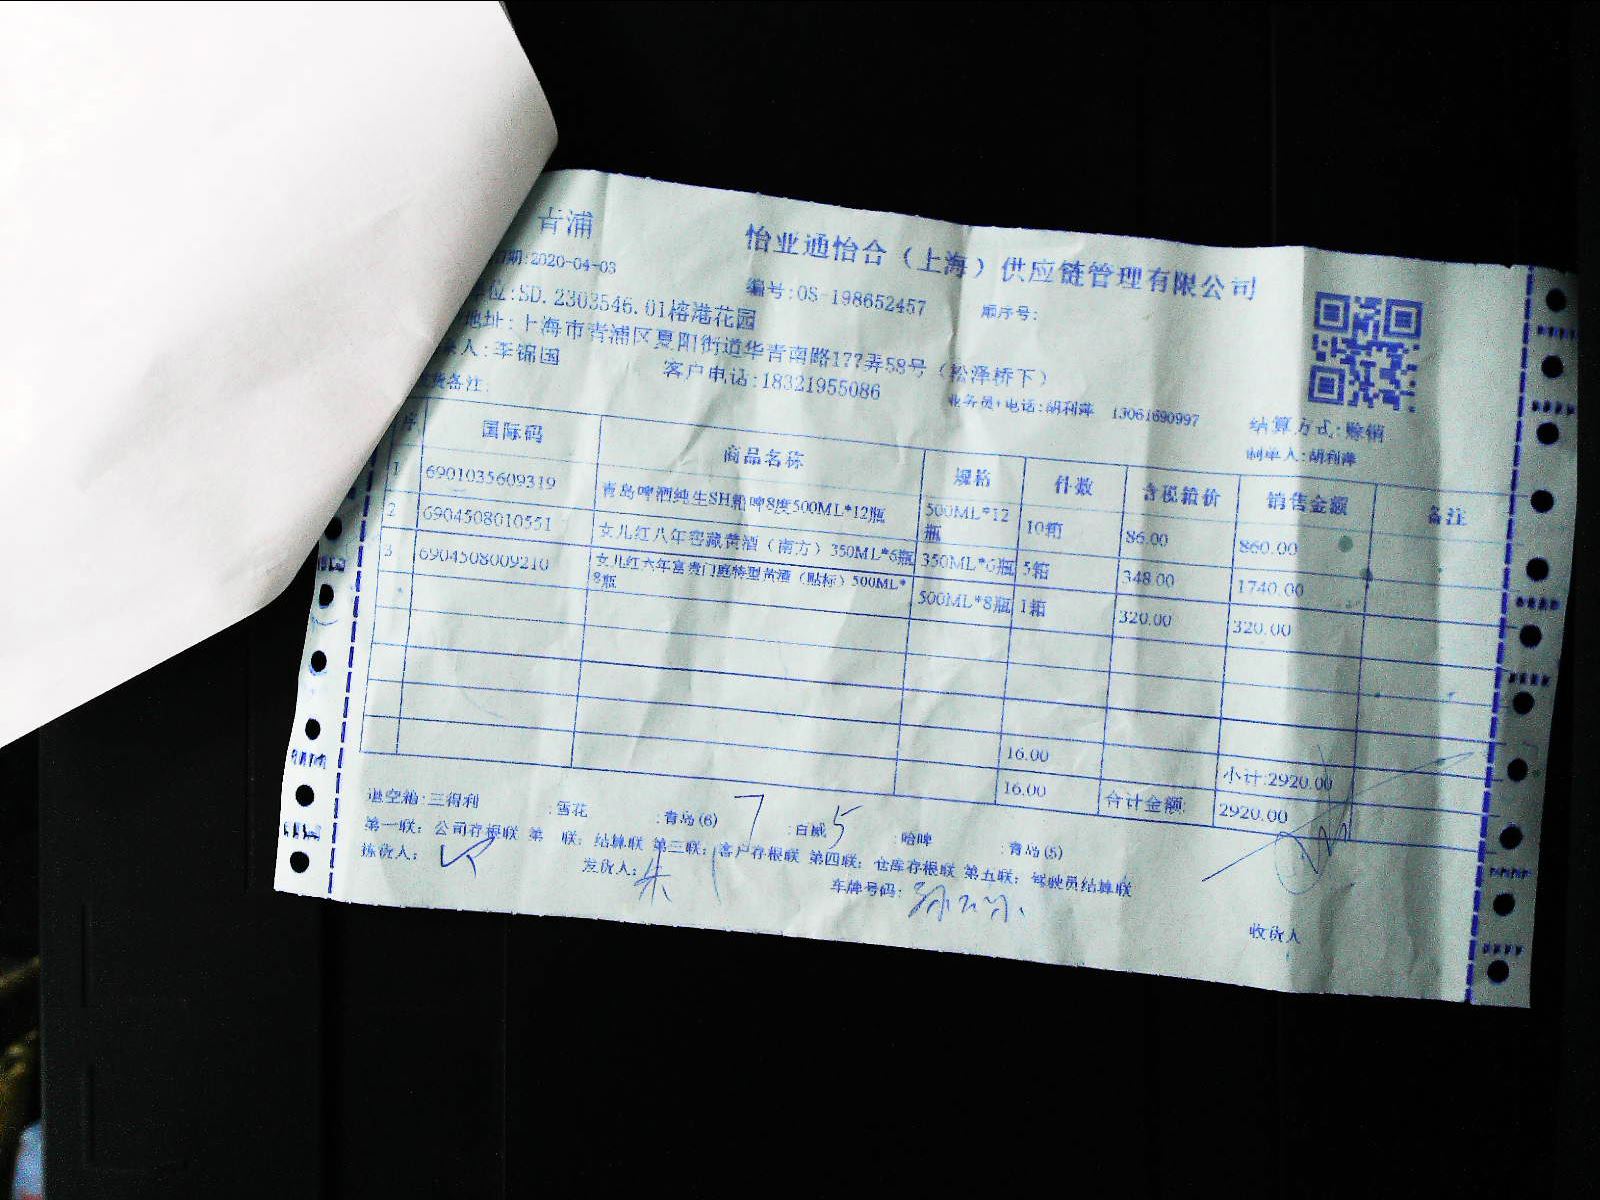 青浦
怡业通怡合（上海）供应链管理有限公司
期:2020-04-03
编号:OS-198652457
顺序号:
位:SD.2303546.01榕港花园
地址:上海市青浦区夏阳街道华青南路177弄58号（松泽桥下）
人:李锦国
客户电话:18321955086
业务员+电话:胡利萍 13061690997
结算方式:赊销
备注:
制单人:胡利萍
序 国际码 商品名称 规格 件数 含税箱价 销售金额 备注
1 6901035609319 青岛啤酒纯生SH船啤8度500ML*12瓶 500ML*12瓶 10箱 86.00 860.00
2 6904508010551 女儿红八年窖藏黄酒（南方）350ML*6瓶 350ML*6瓶 5箱 348.00 1740.00
3 6904508009210 女儿红六年富贵门庭特型黄酒（贴标）500ML*8瓶 500ML*8瓶 1箱 320.00 320.00
16.00 小计:2920.00
16.00 合计金额: 2920.00
退空箱:三得利 :雪花 :青岛(6) 7 :百威 5 :哈啤 :青岛(5)
第一联: 公司存根联 第 联: 结算联 第三联: 客户存根联 第四联: 仓库存根联 第五联: 驾驶员结算联
拣货人: 发货人: 朱 车牌号码:
收货人